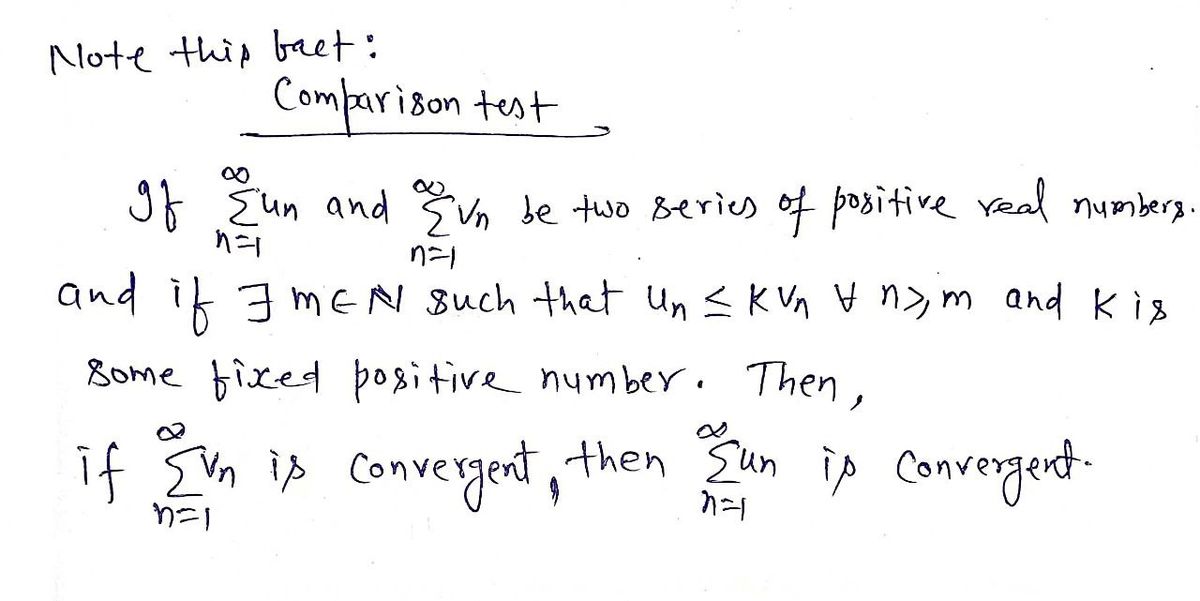 Note this fact:
Comparison test
If ∞∑n=1 un and ∞∑n=1 vn be two series of positive real numbers.
and if ∃ m∈N such that un ≤ K vn ∀ n≥m and K is
some fixed positive number. Then,
if ∞∑n=1 vn is convergent, then ∞∑n=1 un is convergent.